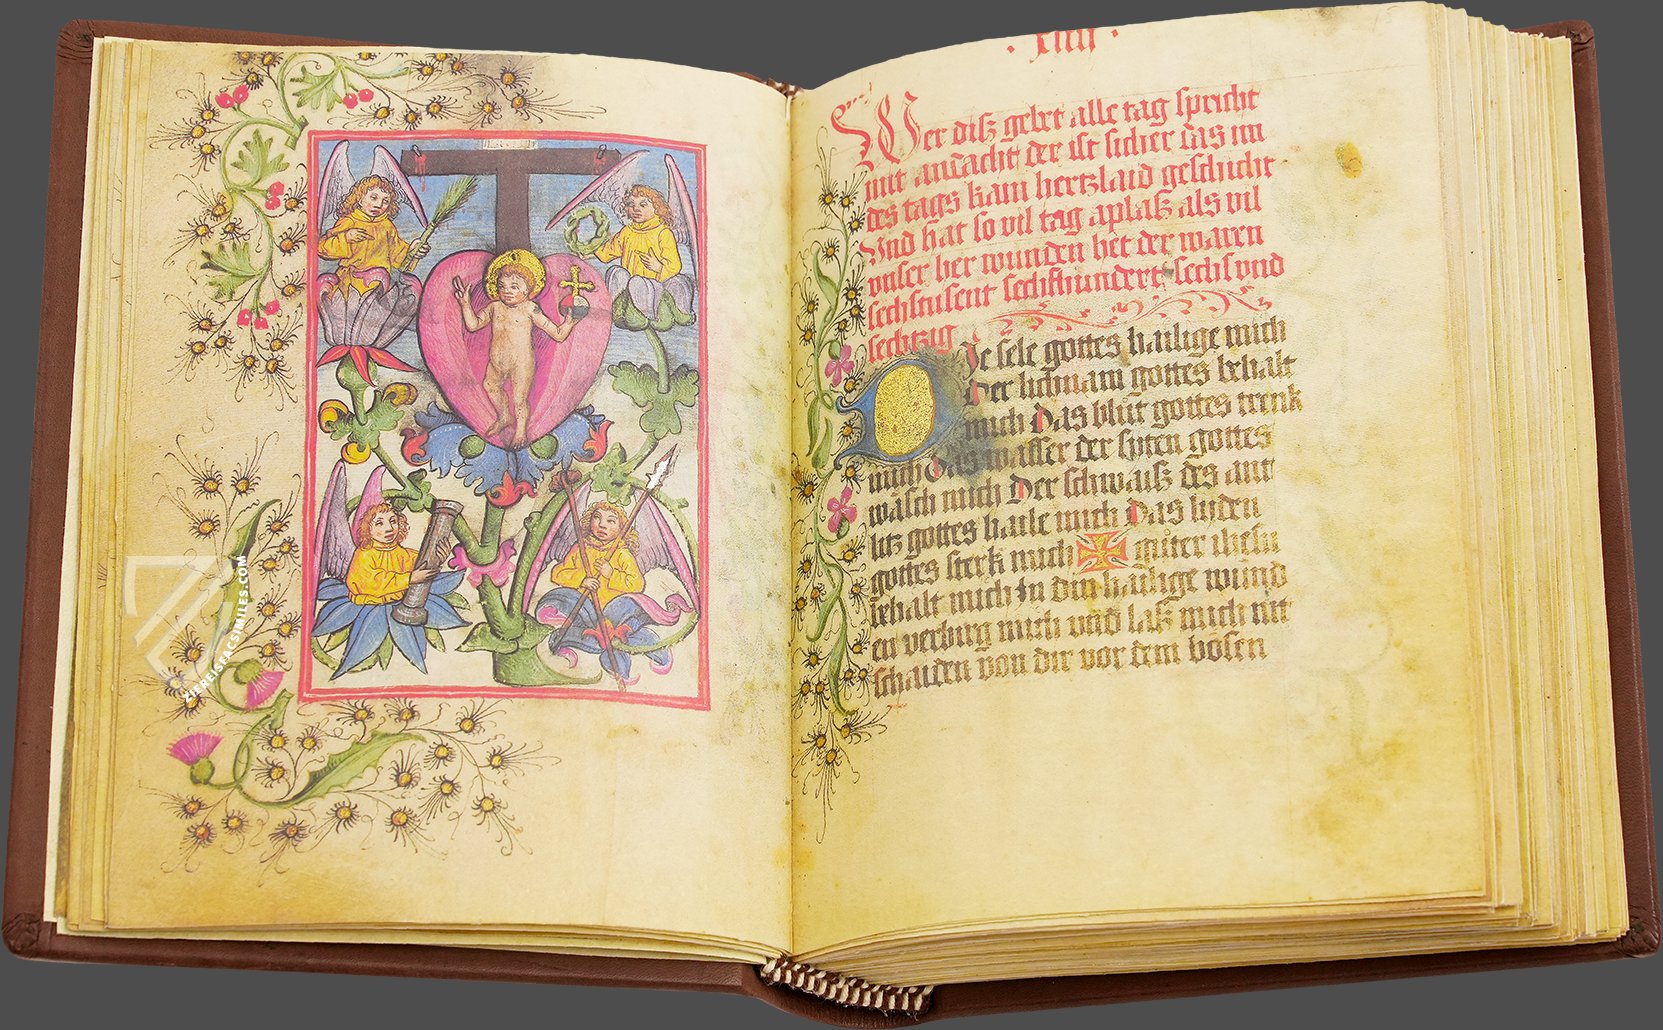 · xiiii ·
Wer diß gebet alle tag spricht
mit andacht der ist sicher das im
des tags kain hertzlaid geschicht
Vnd hat so vil tag aplaß als vil
vnser her wunden het der waren
sechstusent sechshundert sechs vnd
sechtzig
Die sele gottes hailige mich
Der lichnam gottes behalt
mich Das blůt gottes trenk
mich Das wasser der syten gottes
wäsch mich Der schwaiß des ant
litz gottes haile mich Das liden
gottes sterk mich ✠ O gůter ihesu
behalt mich In din hailige wund
en verbirg mich vnd laß mich nit
schaiden von dir vor dem bösen
ZIEREISFACSIMILES.COM